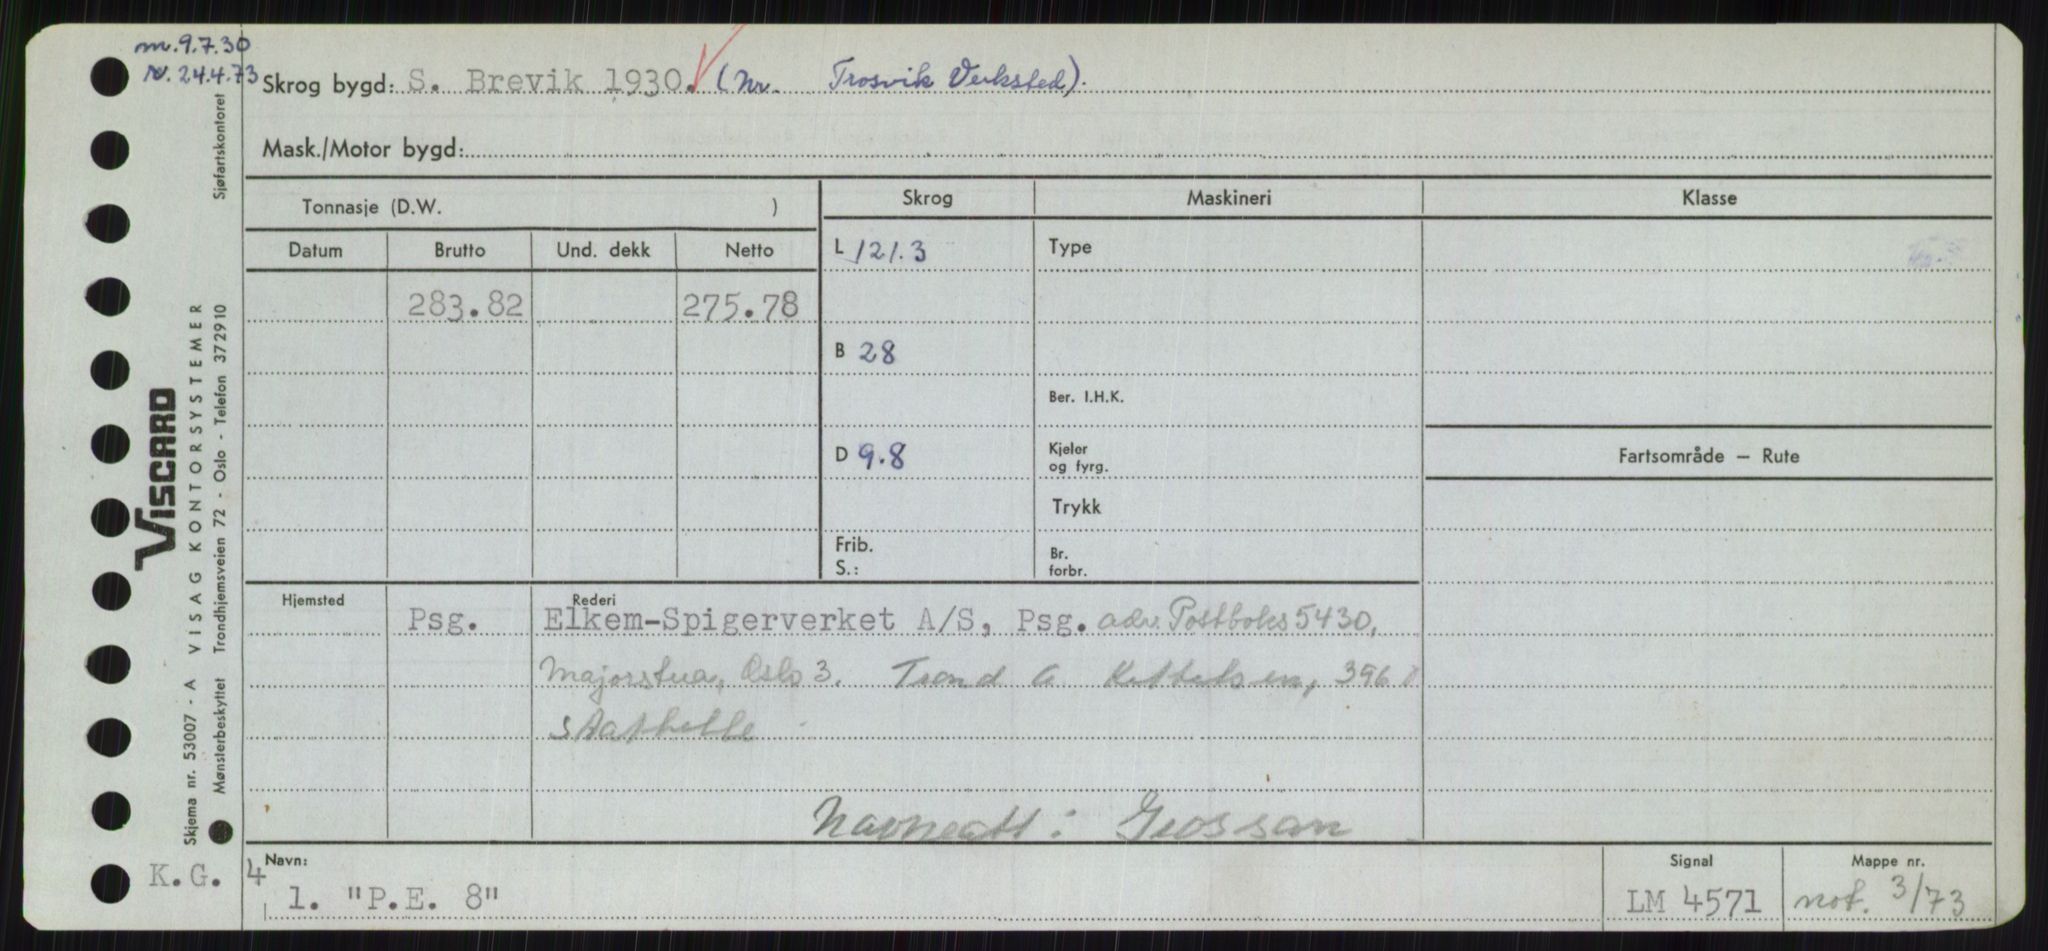 m. 9.7.30
N. 24.4.73
Skrog bygd: S. Brevik 1930. (Nr. Trosvik Verksted).
Mask./Motor bygd:
Tonnasje (D.W. )
Skrog Maskineri Klasse
Datum Brutto Und. dekk Netto
L 121.3 Type
283.82 275.78
B 28
Ber. I.H.K.
D 9.8 Kjeler og fyrg.
Fartsområde — Rute
Trykk
Frib.
S.:
Br. forbr.
Hjemsted Rederi
Psg. Elkem-Spigerverket A/S, Psg. adr. Postboks 5430,
Majorstua, Oslo 3. Trond A Kettelsen, 396
Stathelle
Navneatt: Grossan
Navn:
K.G. 4
1. "P.E. 8"
Signal
LM 4571
Mappe nr.
not. 3/73
VISCARD
Skjema nr. 53007 - A VISAG KONTORSYSTEMER
Mønsterbeskyttet Trondhjemsveien 72 - Oslo - Telefon 372910 Sjøfartskontoret